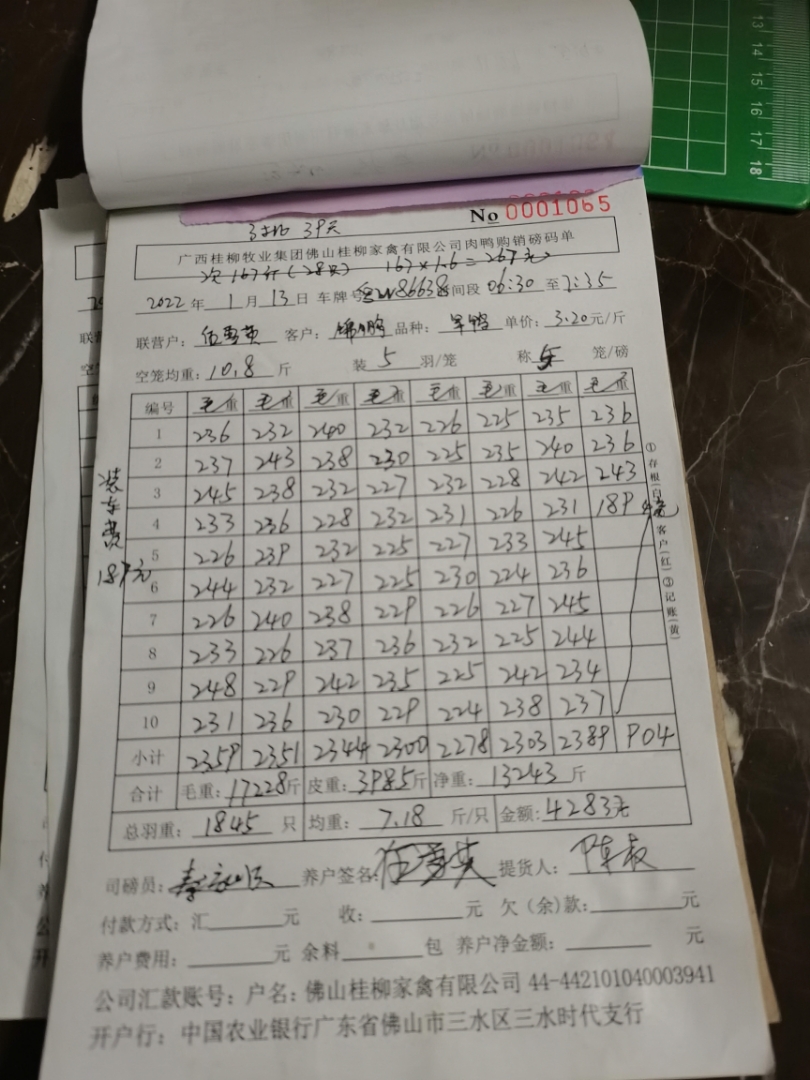 No 0001065
39天
广西桂柳牧业集团佛山桂柳家禽有限公司肉鸭购销磅码单
次 167斤(28只) 167×1.6=267元
2022年 1月 13日 车牌号 86638 时间段 06:30 至 7:35
联营户: 客户: 品种: 单价: 3.20元/斤
空笼均重: 10.8 斤 装 5 羽/笼 称 5 笼/磅
编号 毛重 毛重 毛重 毛重 毛重 毛重 毛重 毛重
1 236 232 240 232 226 225 235 236
2 237 243 238 230 225 235 240 236
3 245 238 232 227 232 228 242 243
4 233 236 228 232 231 226 231 189 4笼
5 226 239 232 225 227 233 245
6 244 232 227 225 230 224 236
7 226 240 238 229 226 227 245
8 233 226 237 236 232 225 244
9 248 229 242 235 225 242 234
10 231 236 230 229 224 238 237
小计 2359 2351 2344 2300 2278 2303 2389 904
合计 毛重: 17228斤 皮重: 3985斤 净重: 13243 斤
总羽重: 1845 只 均重: 7.18 斤/只 金额: 4283元
司磅员: 养户签名: 提货人:
付款方式: 汇 元 收: 元 欠(余)款: 元
养户费用: 元 余料 包 养户净金额: 元
公司汇款账号: 户名: 佛山桂柳家禽有限公司 44-442101040003941
开户行: 中国农业银行广东省佛山市三水区三水时代支行
装车费
189元
①存根(白) 客户(红)③记账(黄)
13 14 15 16 17 18